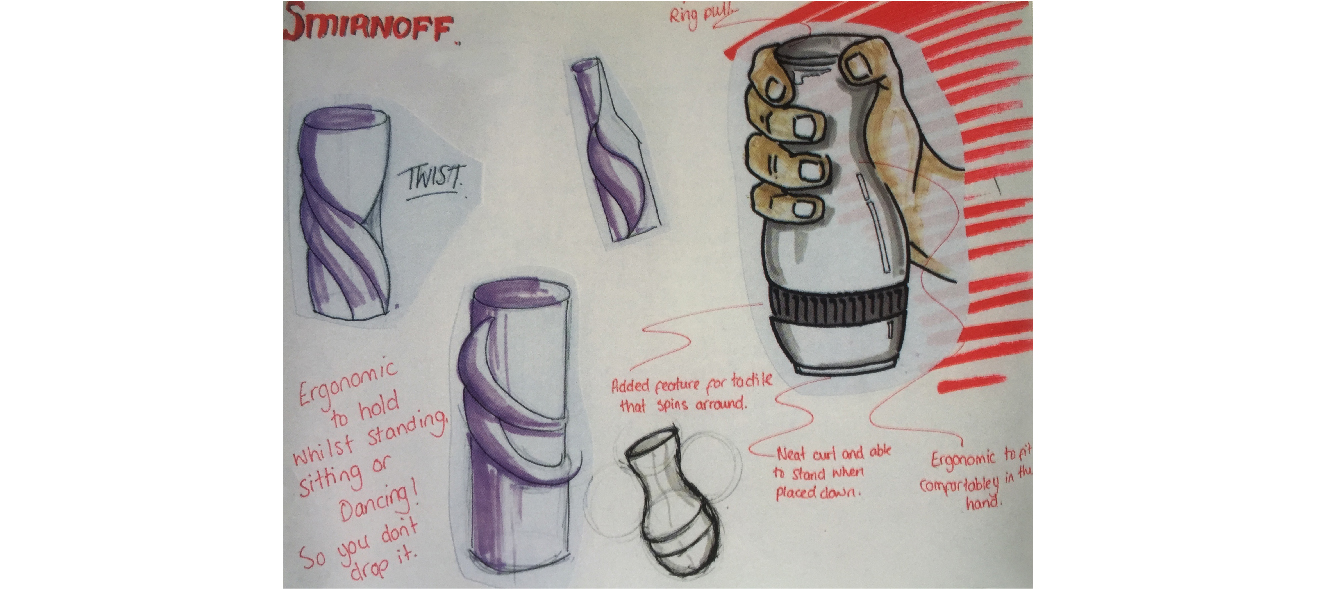 SMIRNOFF.
Ring pull.
TWIST.
Ergonomic
to hold
whilst standing,
sitting or
Dancing!
So you don't
drop it.
Added feature for tactile
that spins arround.
Neat curl and able
to stand when
placed down.
Ergonomic to fit
comfortabley in the
hand.